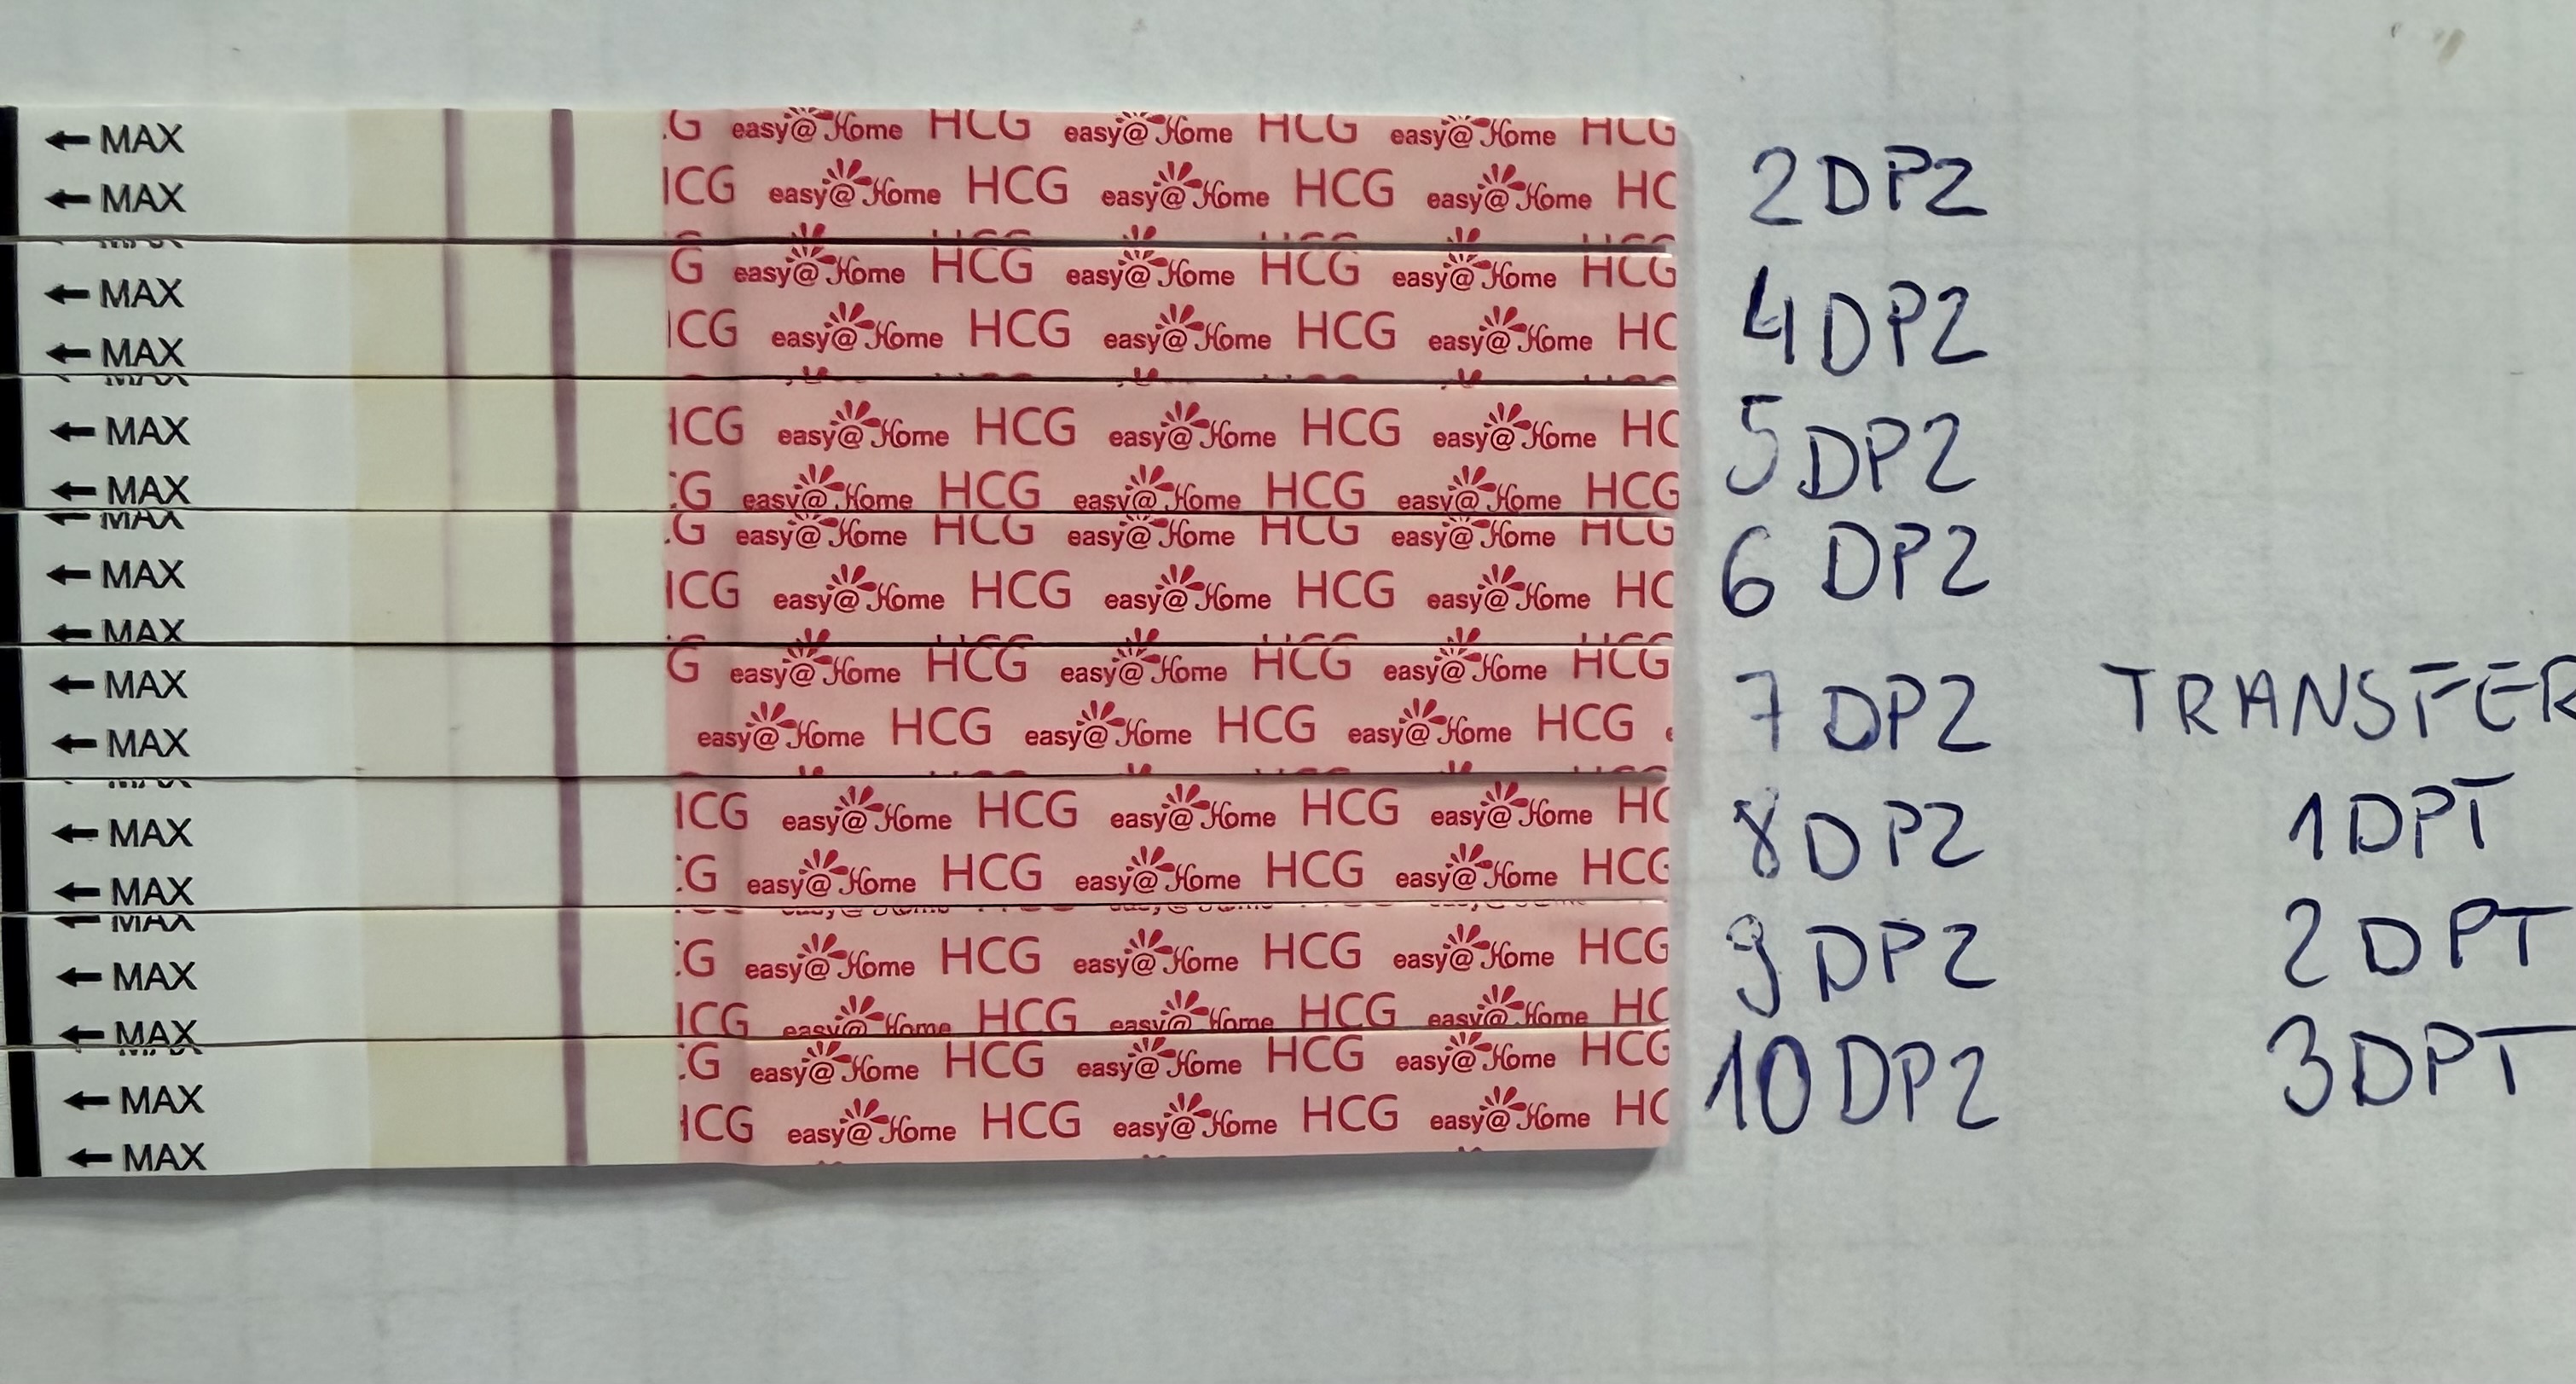 ← MAX G easy@Home HCG easy@Home HCG easy@Home HCG 2DPZ
← MAX ICG easy@Home HCG easy@Home HCG easy@Home HC
← MAX G easy@Home HCG easy@Home HCG easy@Home HCG 4DPZ
← MAX ICG easy@Home HCG easy@Home HCG easy@Home HC
← MAX HCG easy@Home HCG easy@Home HCG easy@Home HC 5DPZ
← MAX G easy@Home HCG easy@Home HCG easy@Home HCG
MAX G easy@Home HCG easy@Home HCG easy@Home HCG 6 DPZ
← MAX ICG easy@Home HCG easy@Home HCG easy@Home HC
← MAX
← MAX G easy@Home HCG easy@Home HCG easy@Home HCG 7 DPZ TRANSFER
← MAX easy@Home HCG easy@Home HCG easy@Home HCG
← MAX ICG easy@Home HCG easy@Home HCG easy@Home HC 8DPZ 1DPT
← MAX G easy@Home HCG easy@Home HCG easy@Home HCG
MAX
← MAX G easy@Home HCG easy@Home HCG easy@Home HCG 9DPZ 2DPT
← MAX ICG easy@Home HCG easy@Home HCG easy@Home HC
← MAX G easy@Home HCG easy@Home HCG easy@Home HCG 10DPZ 3DPT
← MAX HCG easy@Home HCG easy@Home HCG easy@Home HC